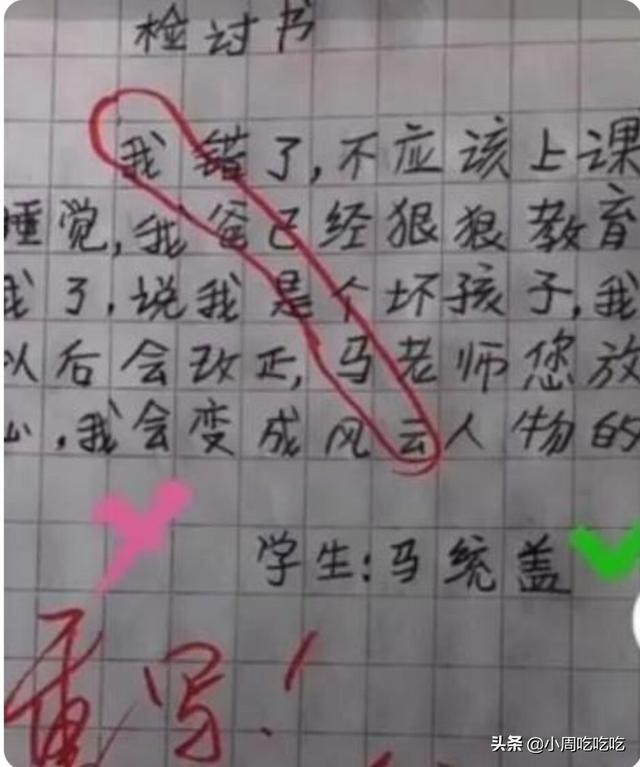 检讨书
我错了,不应该上课
睡觉,我爸已经狠狠教育
我了,说我是个坏孩子,我
以后会改正,马老师您放
心,我会变成风云人物的
学生:马统盖
重写!
头条 @小周吃吃吃